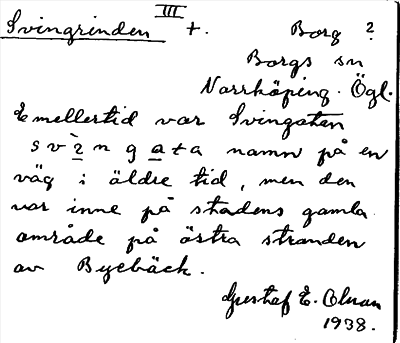 Svingrinden III +. Borg ?
Borgs sn
Norrköping. Ögl.
Emellertid var Svingatan
svìngata namn på en
väg i äldre tid, men den
var inne på stadens gamla
område på östra stranden
av Byebäck.
Gustaf E. Olsson
1938.